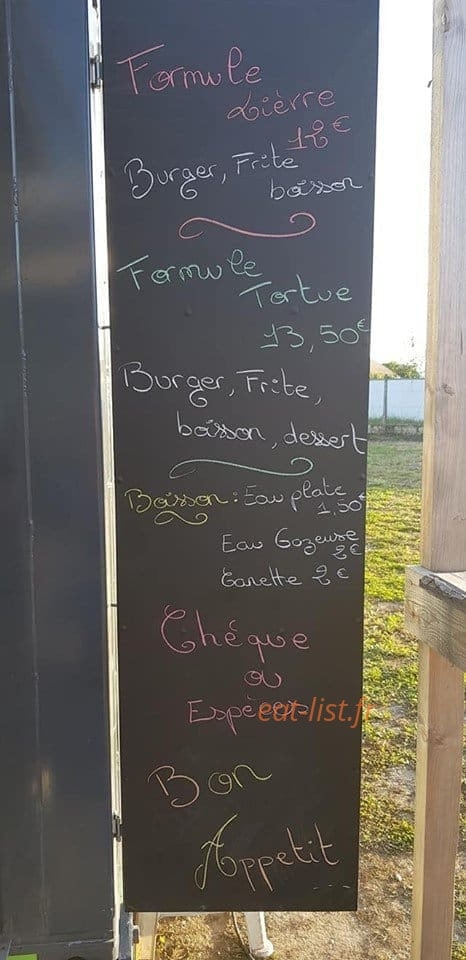 Formule
Lièvre
12€
Burger, Frite
boisson
Formule
Tortue
13,50€
Burger, Frite,
boisson, dessert
Boisson : Eau plate
1,50€
Eau Gazeuse
2€
Canette 2€
Chéque
ou
Espéces
eat-list.fr
Bon
Appetit
...